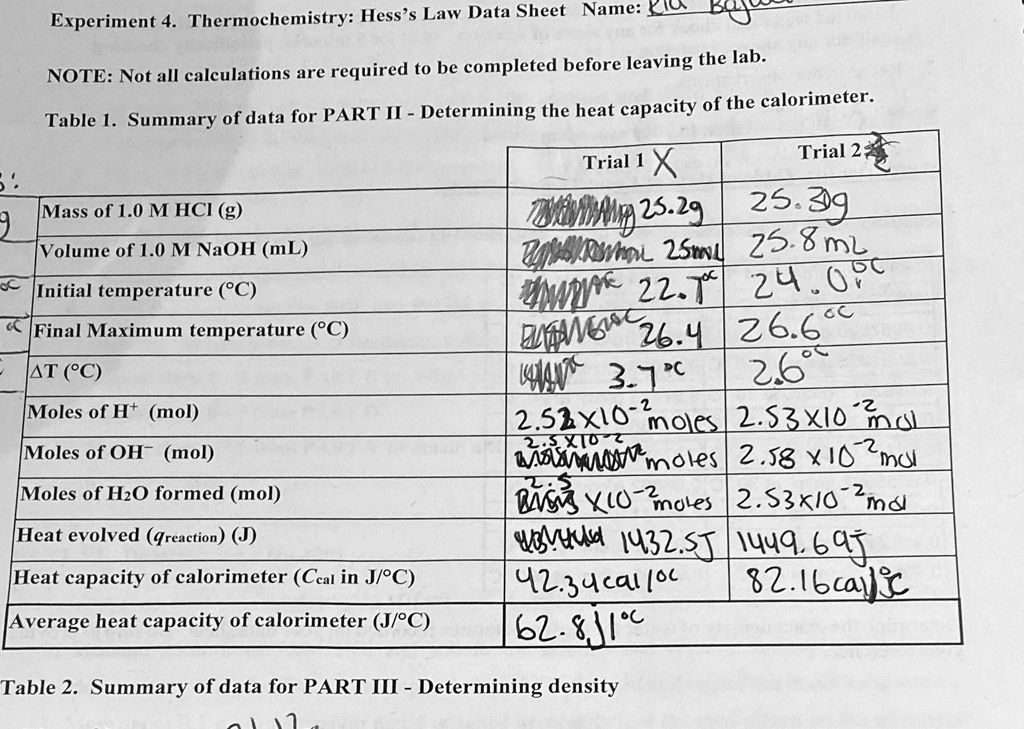 Experiment 4. Thermochemistry: Hess's Law Data Sheet Name:
NOTE: Not all calculations are required to be completed before leaving the lab.
Table 1. Summary of data for PART II - Determining the heat capacity of the calorimeter.
Trial 1 X Trial 2
Mass of 1.0 M HCl (g) 25.2g 25.3g
g
Volume of 1.0 M NaOH (mL) 25mL 25.8 mL
°C Initial temperature (°C) 22.7°C 24.0°C
°C Final Maximum temperature (°C) 26.4 26.6°C
ΔT (°C) 3.7°C 2.6°C
Moles of H⁺ (mol) 2.52 X10⁻² moles 2.53 X10⁻² mol
Moles of OH⁻ (mol) 2.5 X10⁻² moles 2.58 X 10⁻² mol
Moles of H₂O formed (mol) 2.5 X10⁻² moles 2.53X10⁻² mol
Heat evolved (qreaction) (J) 1432.5J 1449.69J
Heat capacity of calorimeter (Ccal in J/°C) 42.34cal/°C 82.16cal/°C
Average heat capacity of calorimeter (J/°C) 62.8 j/°C
Table 2. Summary of data for PART III - Determining density